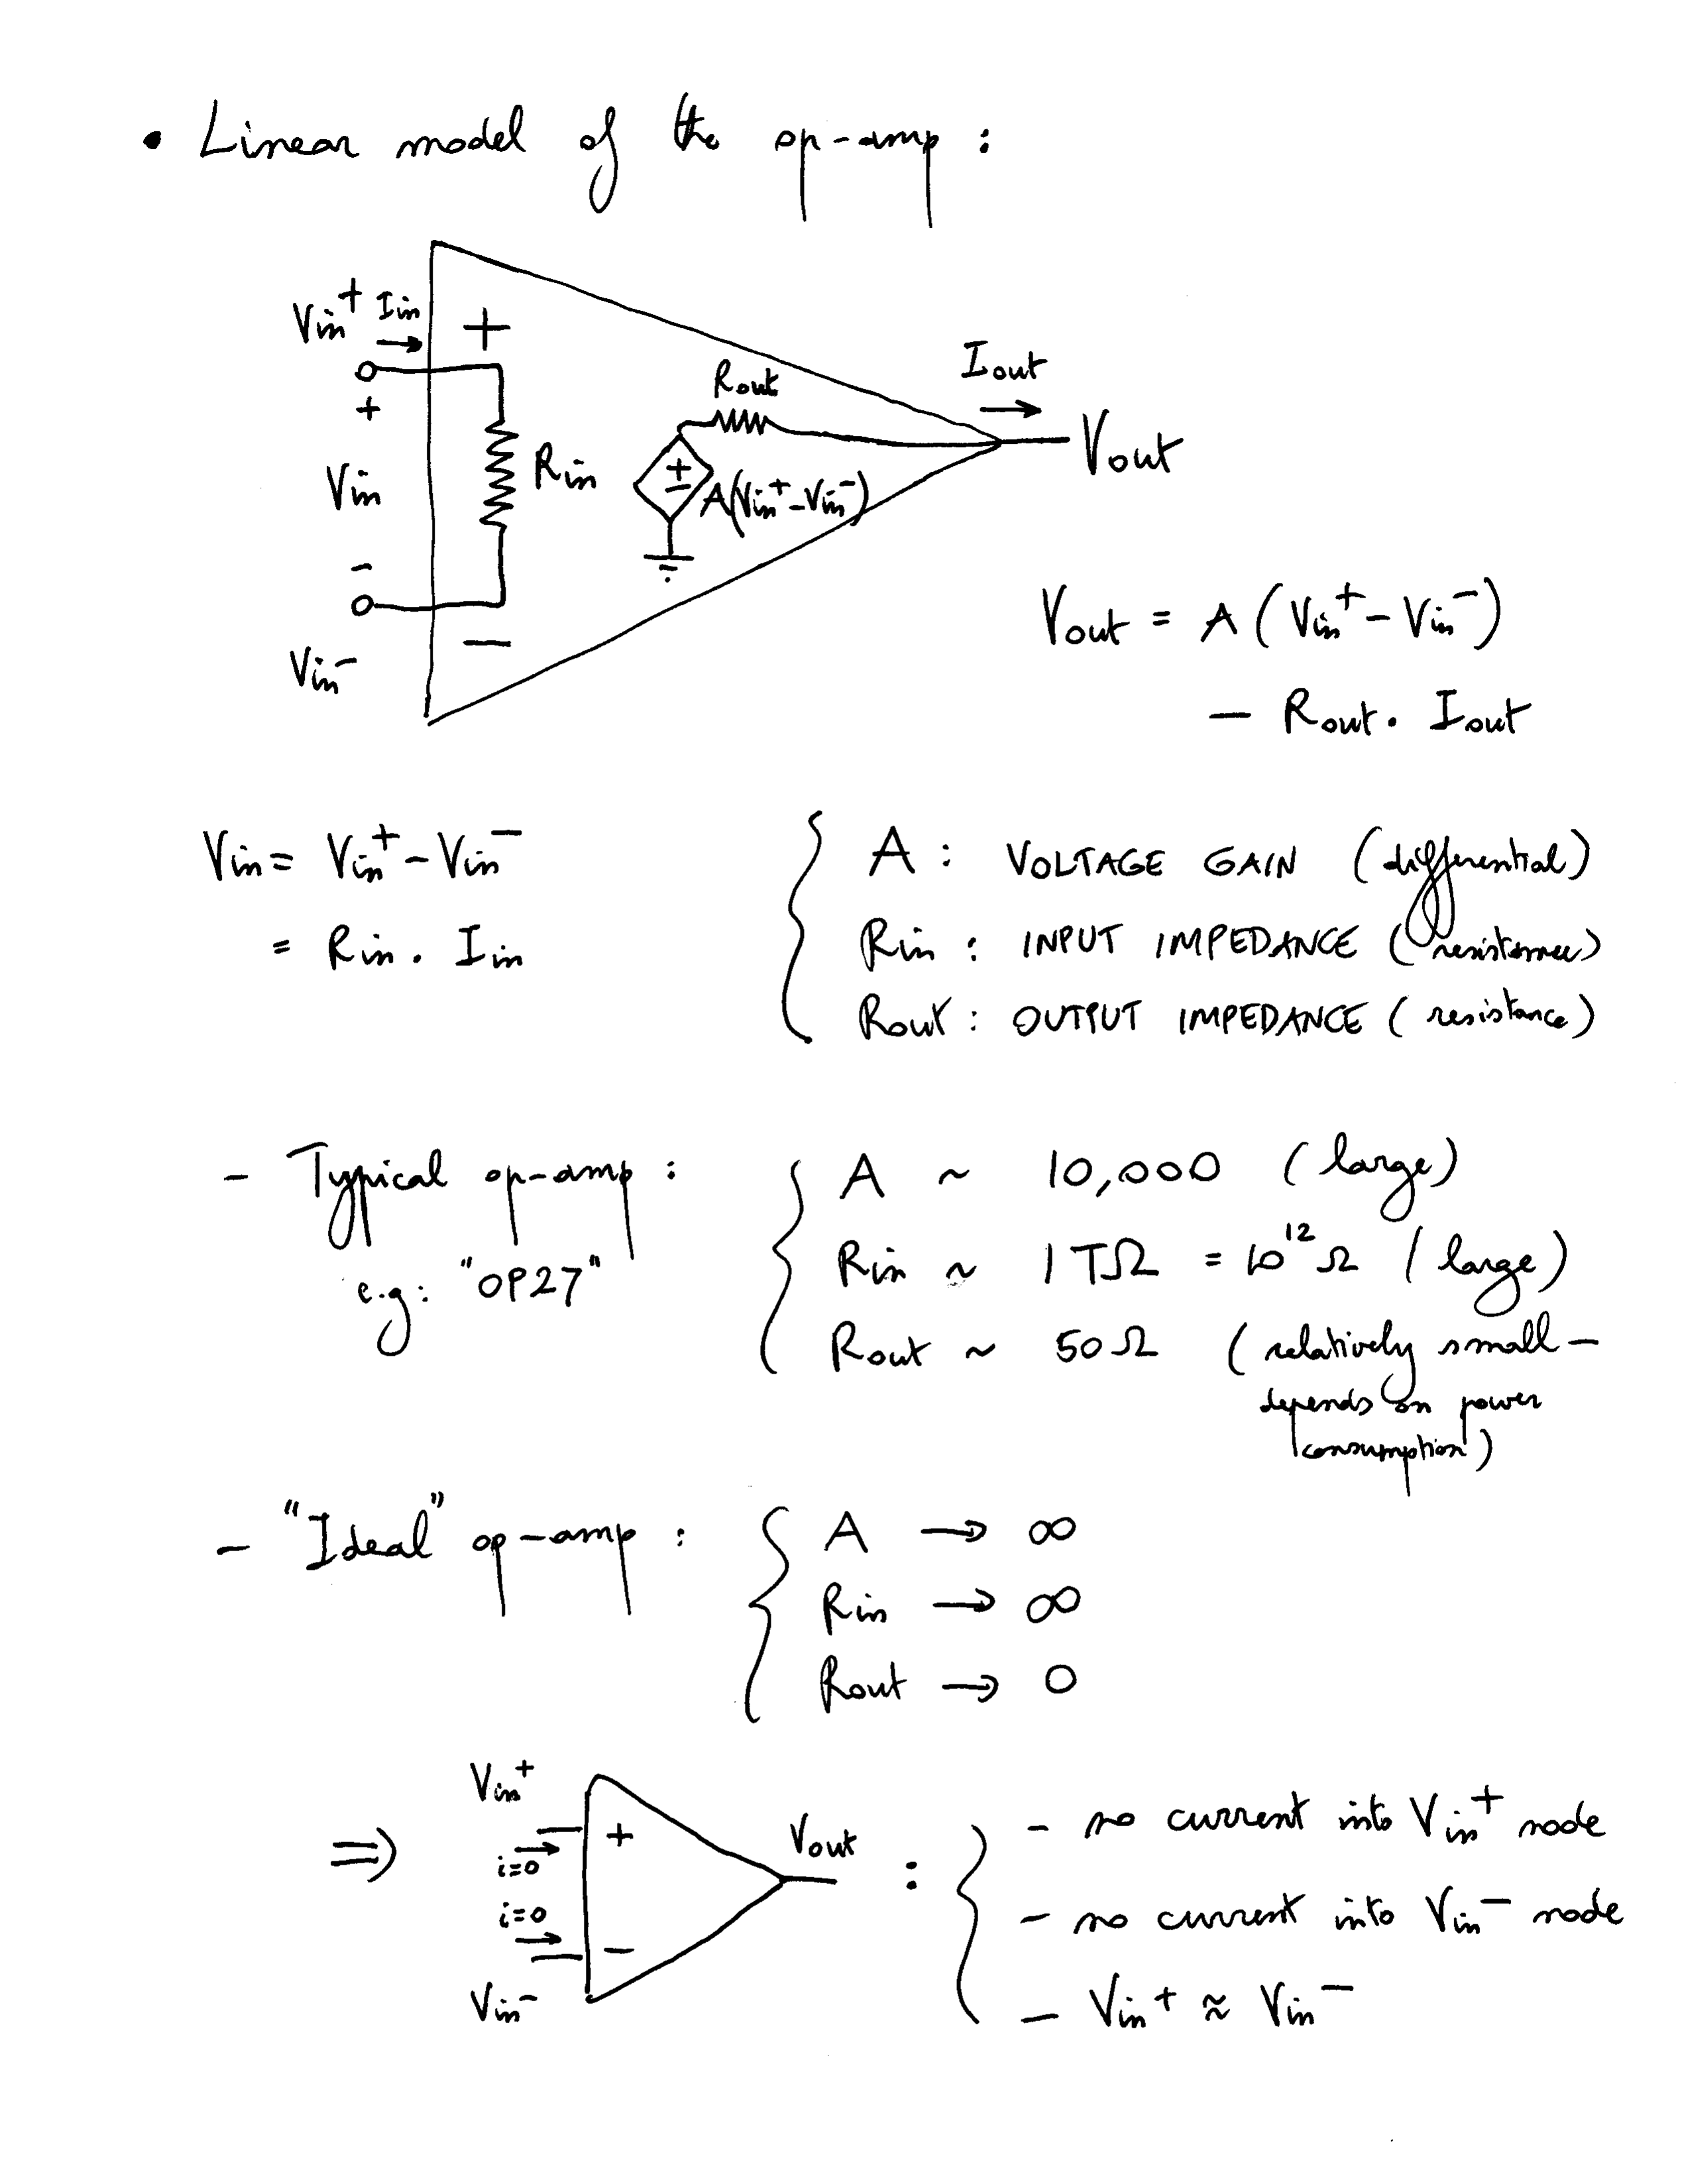 • Linear model of the op-amp :
Vin+ Iin
+
+
Vin
-
Vin-
-
Rin
Rout
±
A(Vin+ - Vin-)
Iout
Vout
Vout = A (Vin+ - Vin-)
- Rout . Iout
Vin = Vin+ - Vin-
= Rin . Iin
A : VOLTAGE GAIN (differential)
Rin : INPUT IMPEDANCE (resistance)
Rout : OUTPUT IMPEDANCE (resistance)
- Typical op-amp :
e.g: "OP27"
A ~ 10,000 (large)
Rin ~ 1 TΩ = 10^12 Ω (large)
Rout ~ 50 Ω (relatively small -
depends on power
consumption)
- "Ideal" op-amp :
A → ∞
Rin → ∞
Rout → 0
⇒
Vin+
i=0
i=0
Vin-
+
-
Vout
:
- no current into Vin+ node
- no current into Vin- node
- Vin+ ≈ Vin-